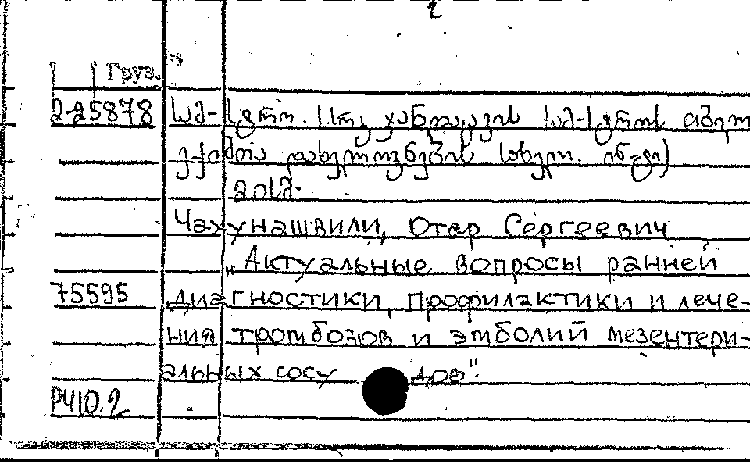 2
Груз.
2-25878 სამ-
ექიმთა დახელოვნების სახელ. ინ-ტი)
თბილ.
Чахунашвили, Отар Сергеевич
„Актуальные вопросы ранней
75595 диагностики, профилактики и лече-
ния тромбозов и эмболий мезентери-
альных сосудов".
Р410.2